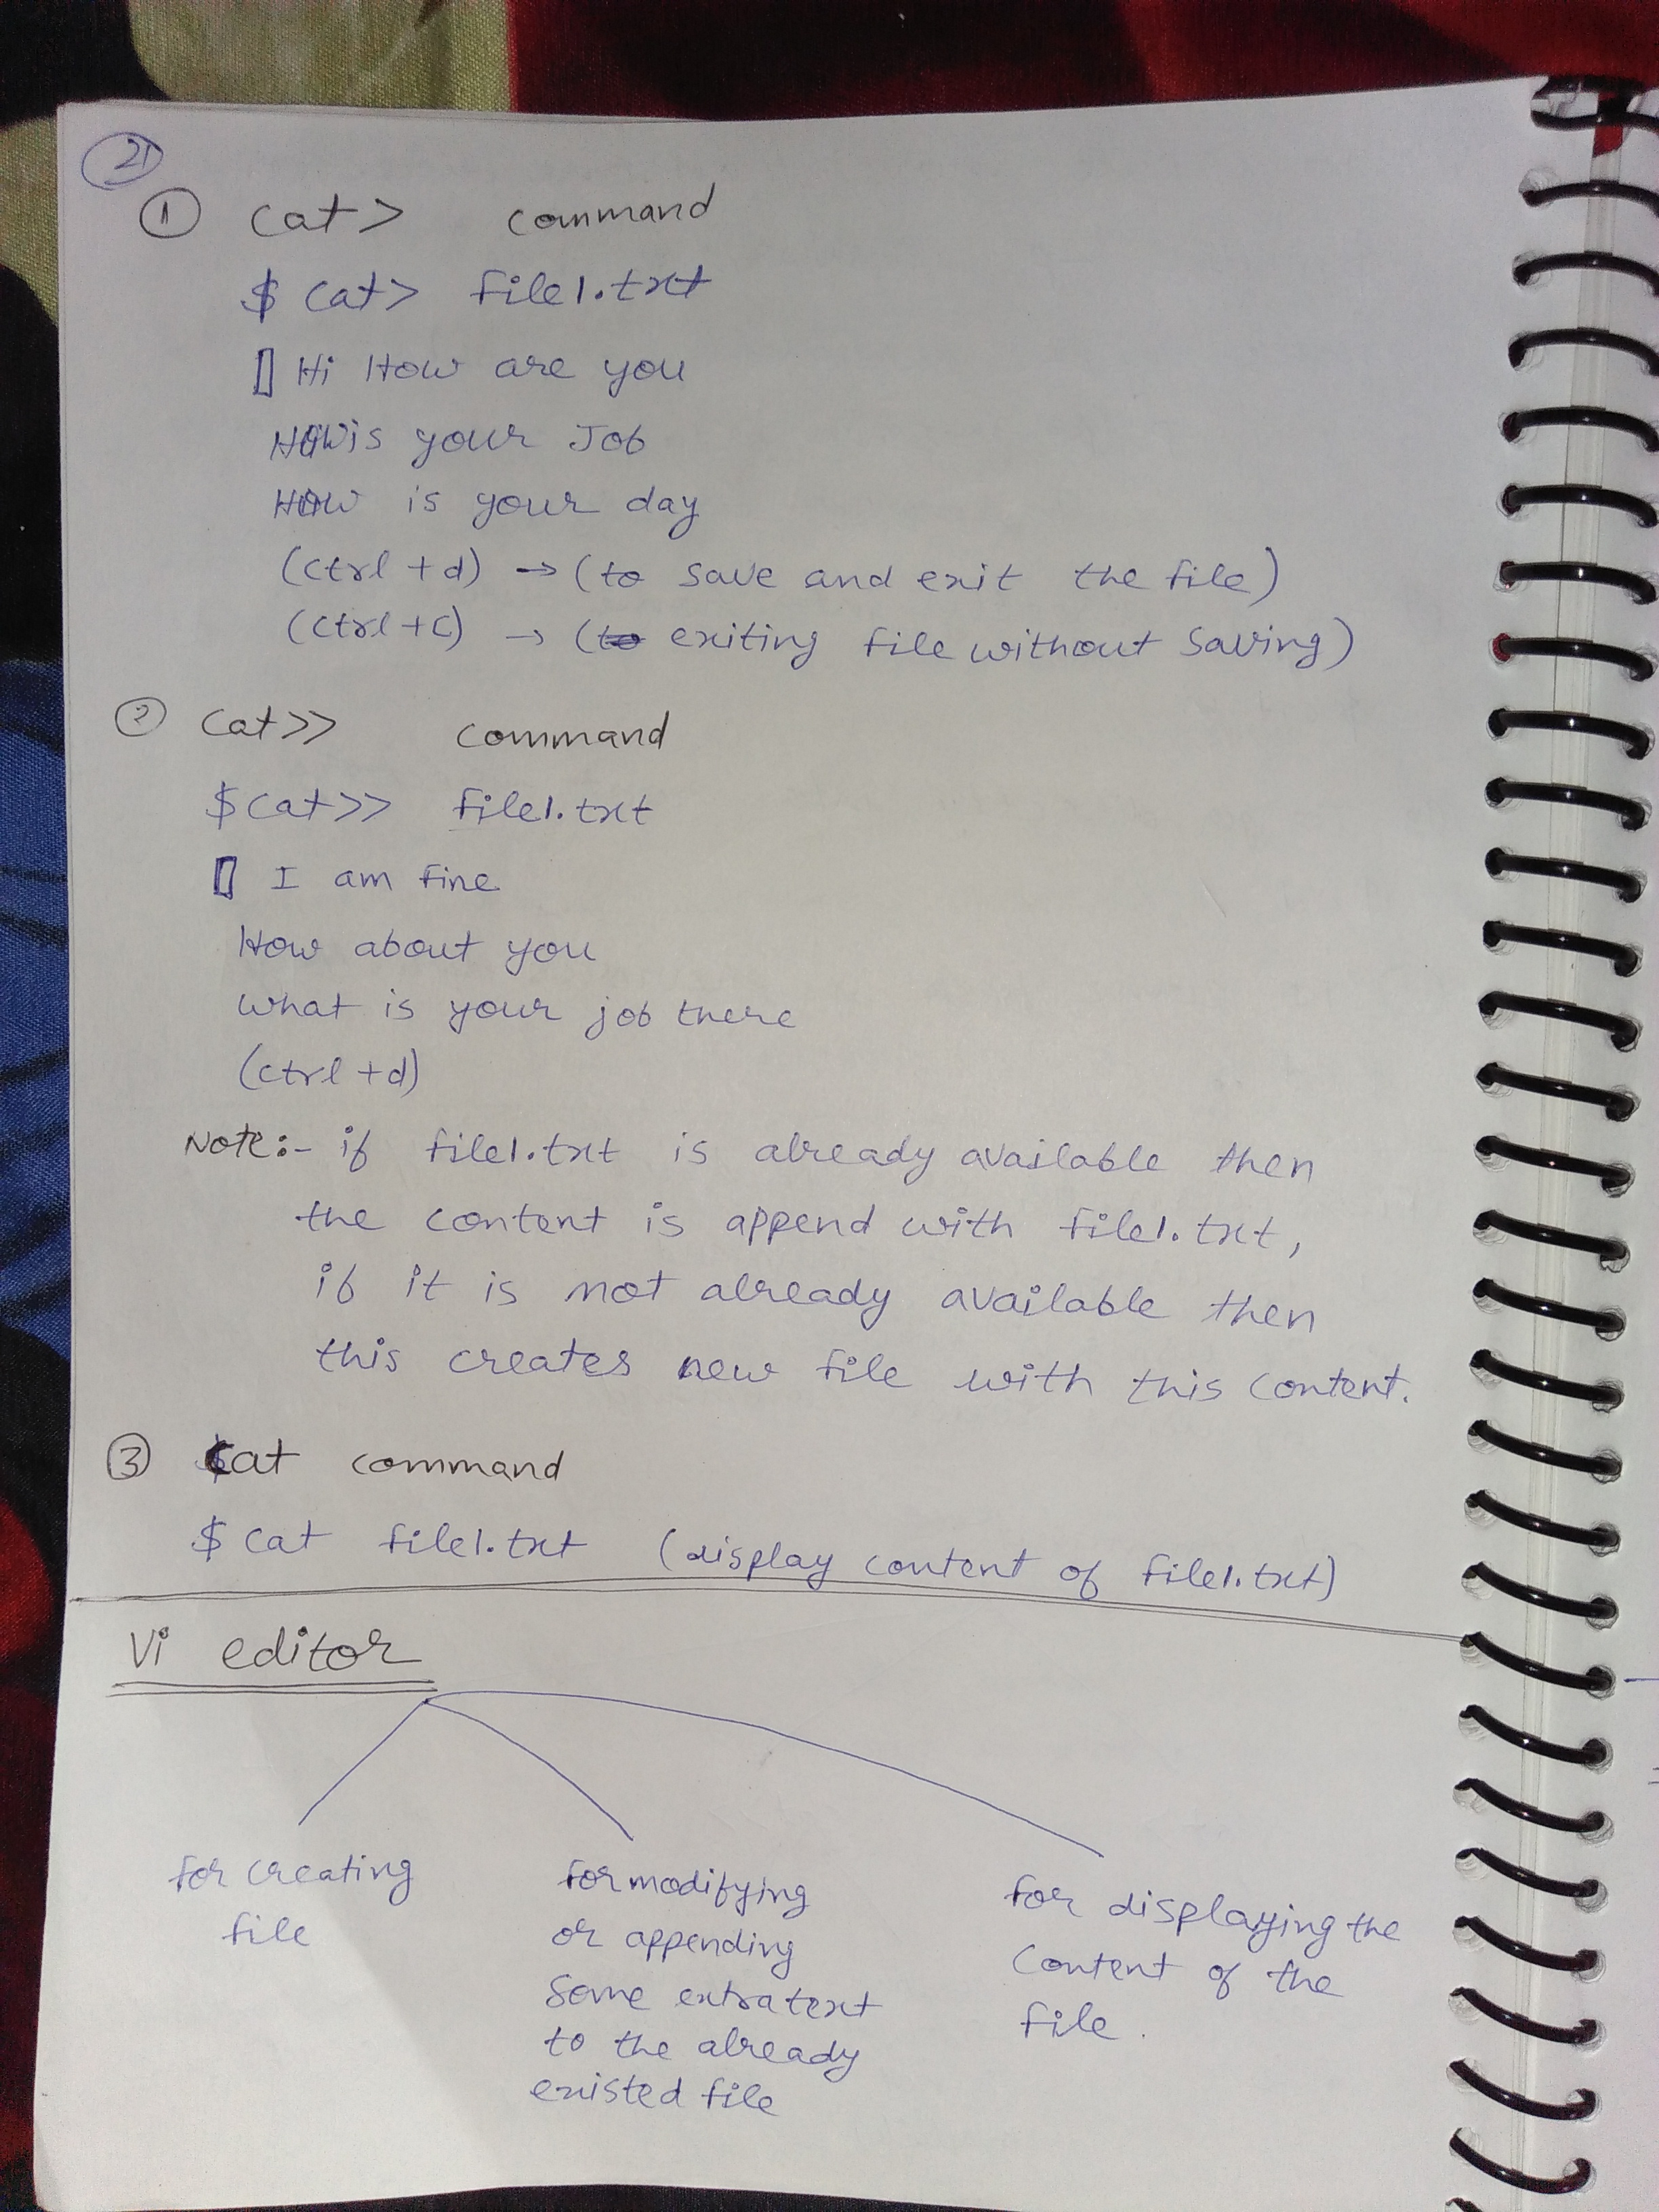 21
① cat> command
$ cat> file1.txt
Hi How are you
How is your Job
How is your day
(ctrl +d) → (to save and exit the file)
(ctrl +c) → (to exiting file without saving)
② cat>> command
$cat>> file1.txt
I am fine
How about you
what is your job there
(ctrl +d)
Note:- if file1.txt is already available then
the content is append with file1.txt,
if it is not already available then
this creates new file with this content.
③ cat command
$ cat file1.txt (display content of file1.txt)
Vi editor
for creating
file
for modifying
or appending
some extra text
to the already
existed file
for displaying the
content of the
file.